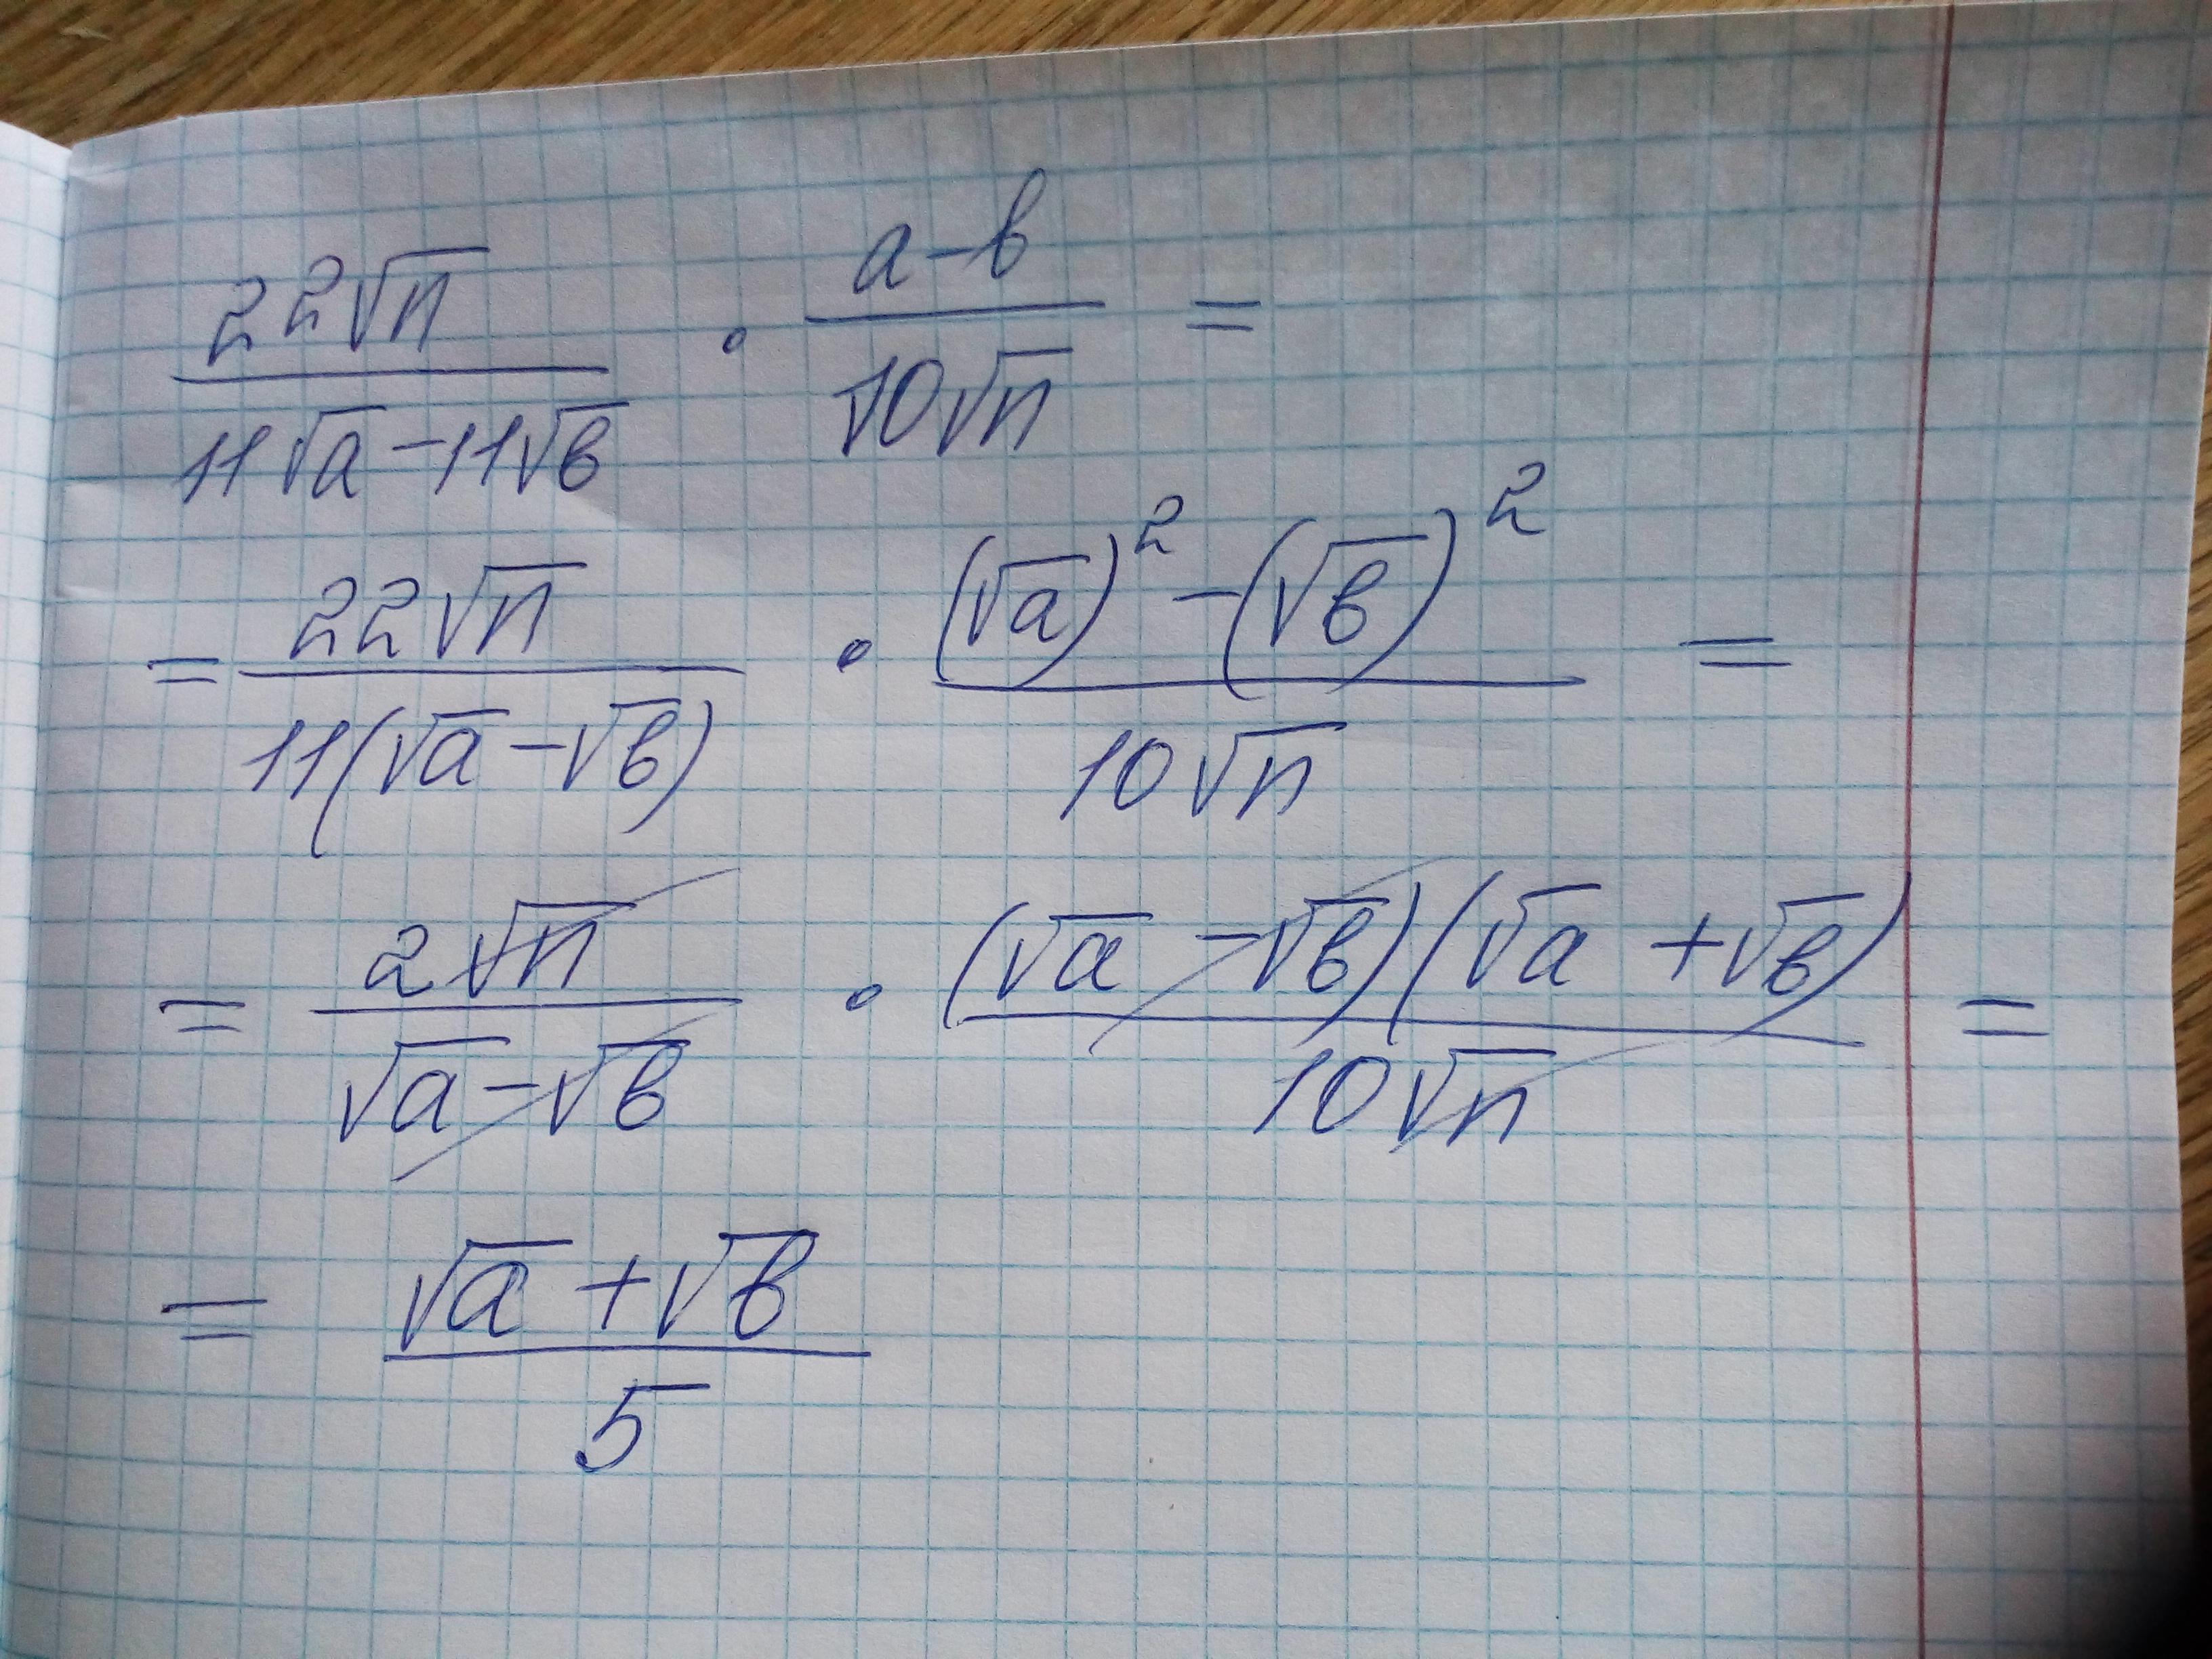 22√n / (11√a − 11√b) · (a − b) / (10√n) =
= 22√n / (11(√a − √b)) · ((√a)² − (√b)²) / (10√n) =
= 2√n / (√a − √b) · (√a − √b)(√a + √b) / (10√n) =
= (√a + √b) / 5